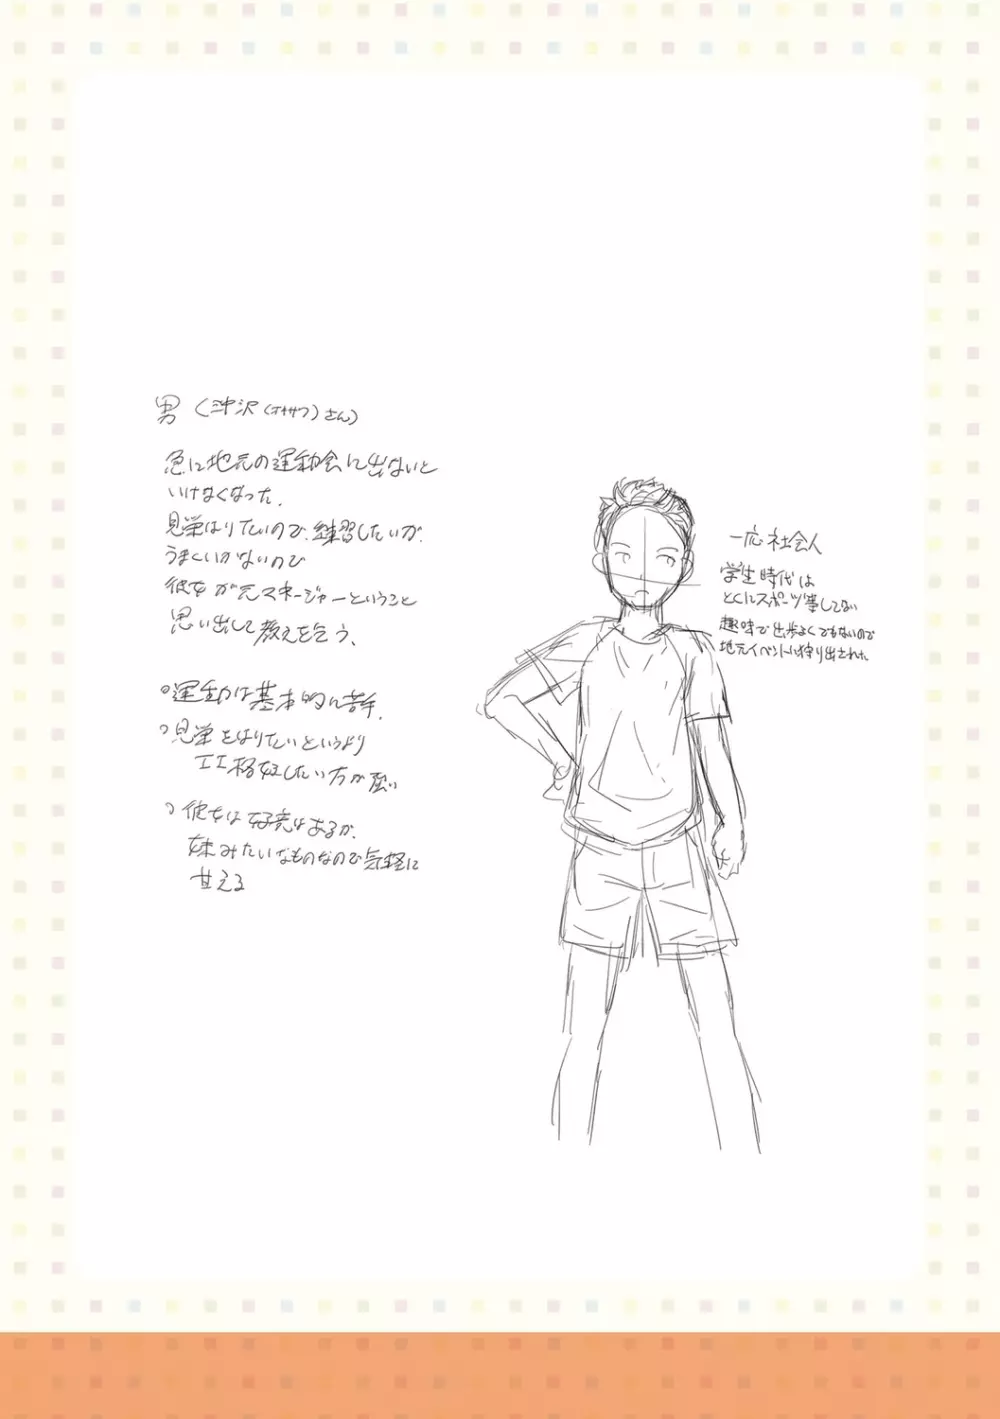 男(沖沢(オキサワ)さん)
急に地元の運動会に出ないと
いけなくなった.
見栄はりたいので、練習したいが、
うまくいかないので
彼女が元マネージャーということ
思い出して教えを乞う、
○運動は基本的に苦手.
○見栄をはりたいというより
エエ格好したい方が強い
○彼女は好意はあるが、
妹みたいなものなので気軽に
甘える
一応社会人
学生時代は
とくにスポーツ等してない
趣味で出歩よくでもないので
地元イベントに狩り出された